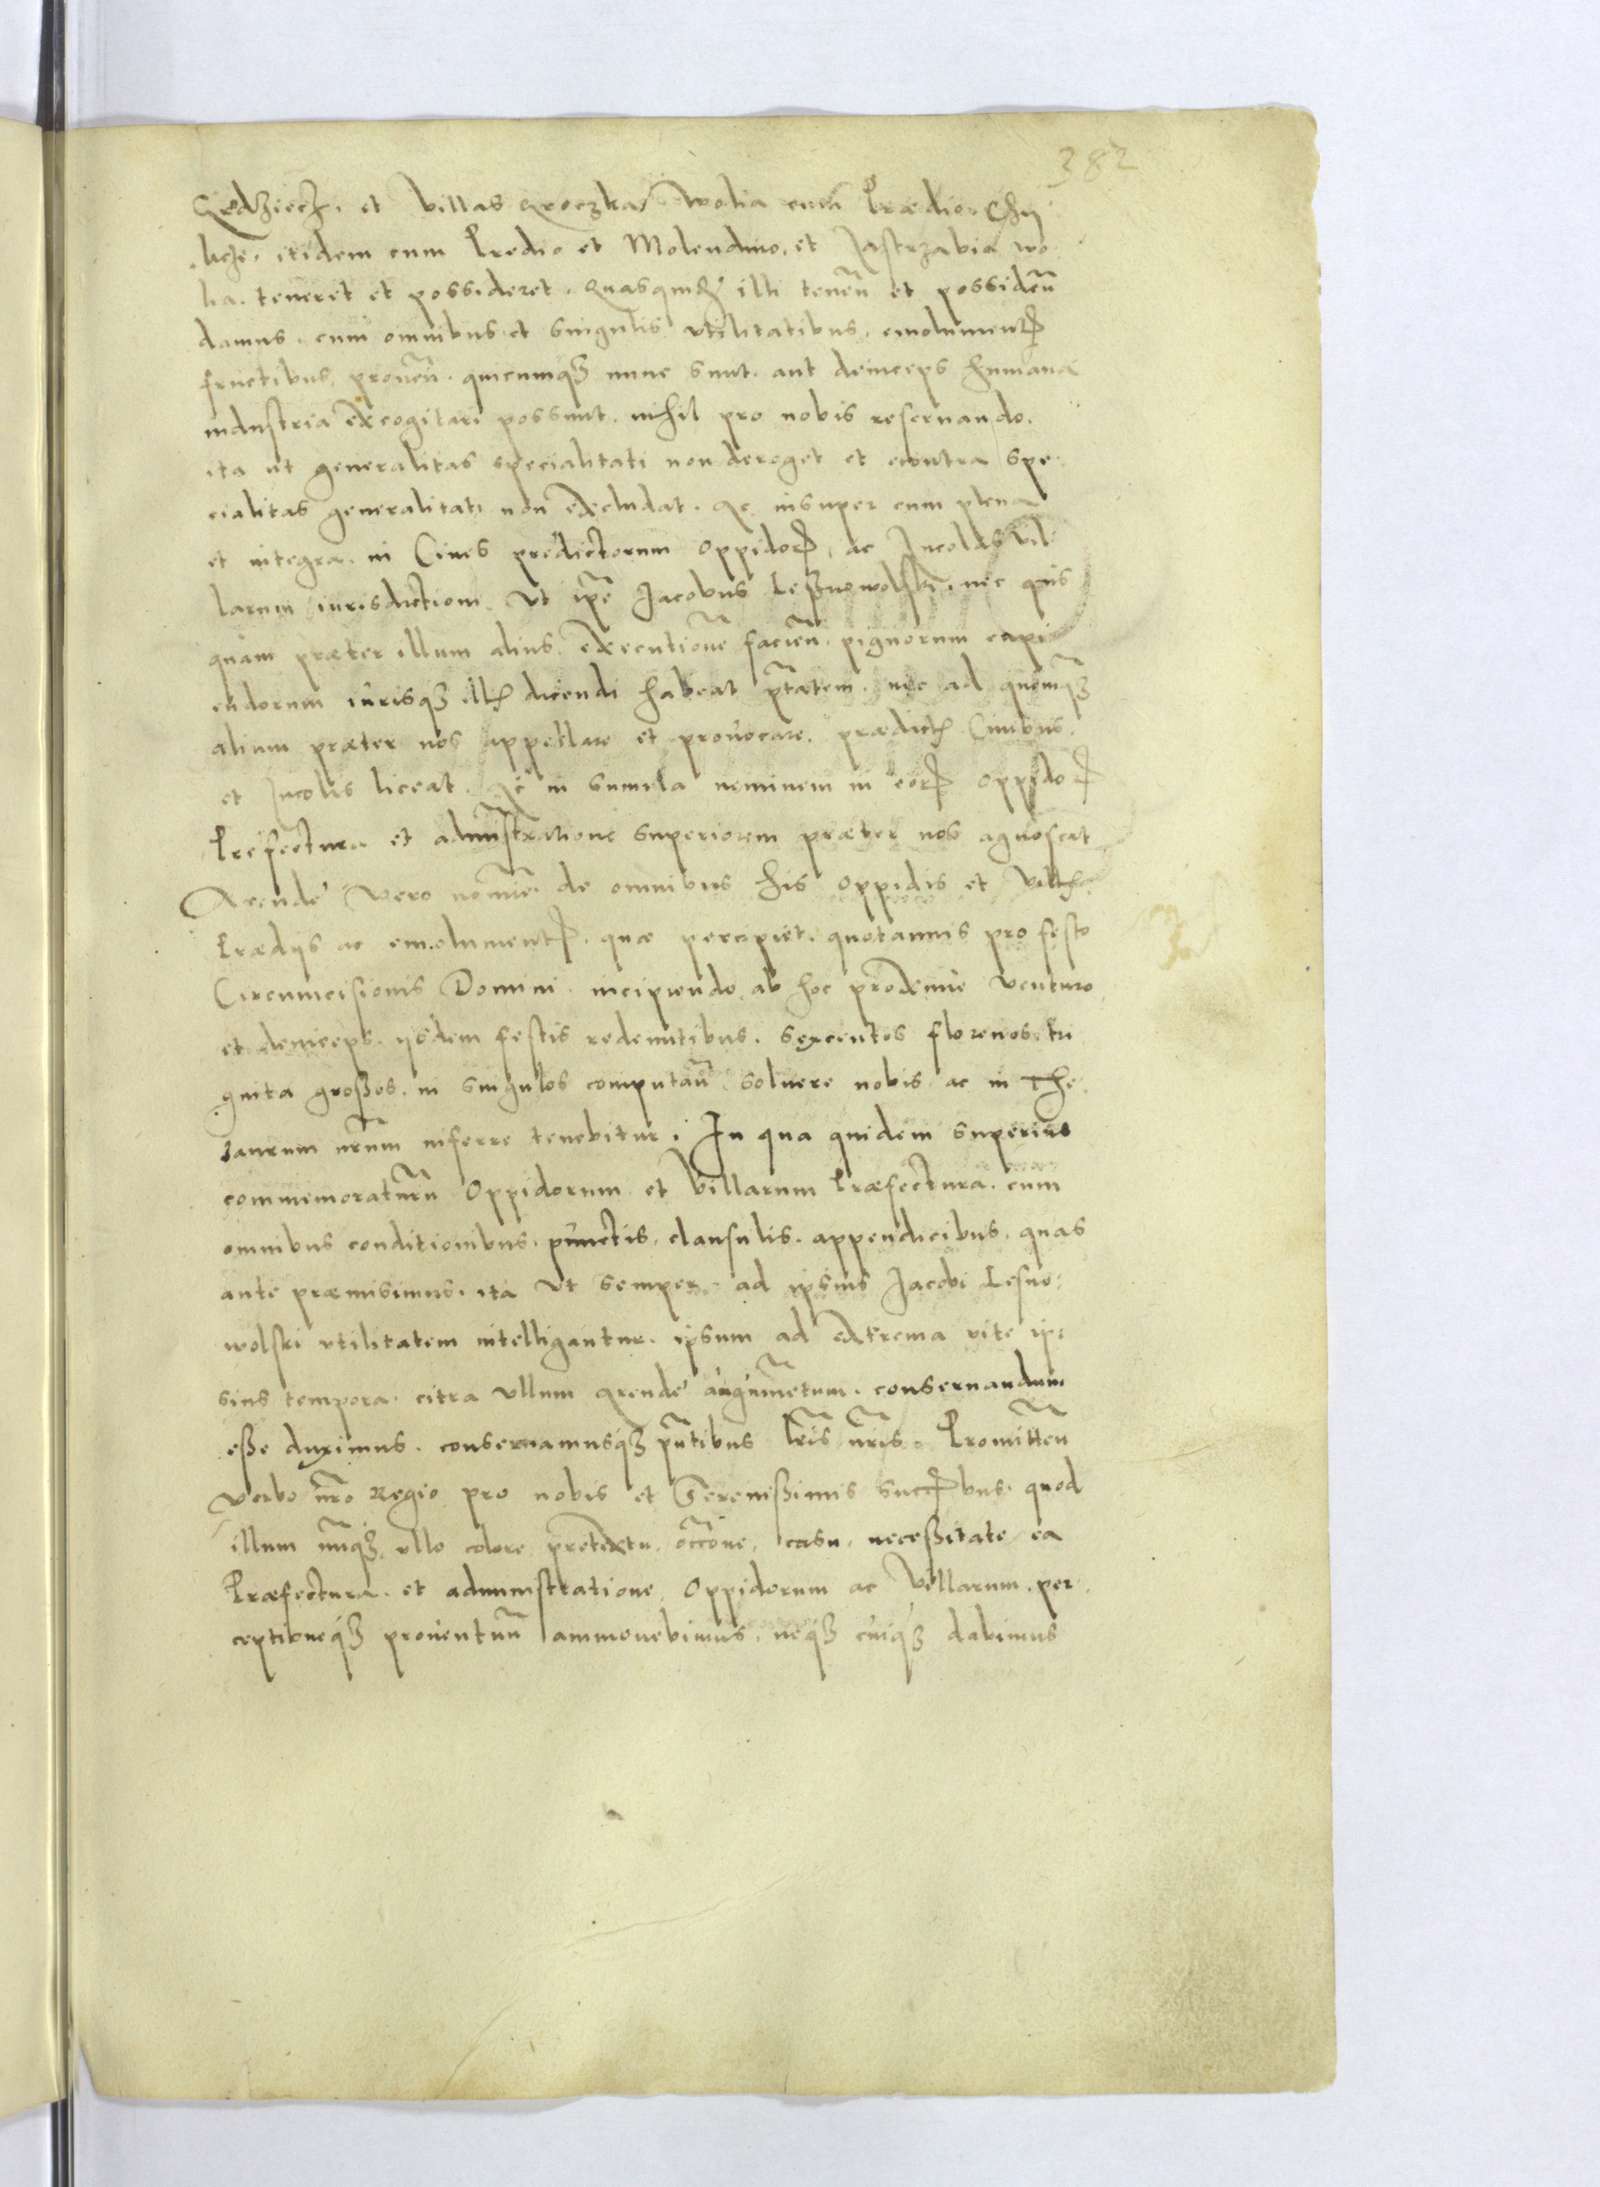 382
et Villas Wolia cum Prædio
itidem cum Predio et Molendino, et Jastrzabia wo
lia. teneret et possideret. Quasquidem illi tenen̄ et possiden̄
damus. cum omnibus et singulis vtilitatibus, emolumentis
fructibus, prouen̄. quicumq3 nunc sunt. aut deinceps humana
industria excogitari possunt. nihil pro nobis reseruando.
ita ut generalitas specialitati non deroget et econtra spe
cialitas generalitati non excludat. Ac insuper cum plena
et integra. in Ciues predictorum oppidor, ac Incolas vil
larum iurisdictioni. Vt ipse Jacobus Leßnowolski. nec quis
quam præter illum alius. executione facien̄. pignorum capi
endorum iurisq3 ill dicendi habeat ptatem. nec ad quemq3
alium præter nos appellare et prouocare. prædict Ciuibus.
et Incolis liceat. Ac in summa neminem in eor oppido
Prefectura et administratione superiorem præter nos agnoscat
Arende Vero nomine. de omnibus his oppidis et
Prædijs ac emolument. quæ percipiet. quotannis pro festo
Circumcisionis Domini. incipiendo ab hoc proxime venturo
et deinceps. ijsdem festis redeuntibus. sexcentos florenos tri
ginta großos. in singulos computan̄ soluere nobis ac in The
saurum nrum inferre tenebitur. In qua quidem superius
commemoraturn Oppidorum et Villarum Præfectura. cum
omnibus conditionibus. punctis, clausulis. appendicibus. quas
ante præmisimus. ita Vt semper. ad ipsius Jacobi Lesno:
wolski vtilitatem intelligantur. ipsum ad extrema vite ip:
sius tempora. citra vllum arende augumetum. conseruandum
eße duximus. conseruamusq3 pntibus lris nris. Promitten̄
Verbo nro Regio pro nobis et Serenißimis succbus. quod
illum nuq3 vllo colore pretextu. occone, casu, necessitate ea
Præfectura. et administratione Oppidorum ac Villarum. per
ceptioneq3 prouentuū ammouebimus. neq3 cuiq3 dabimus